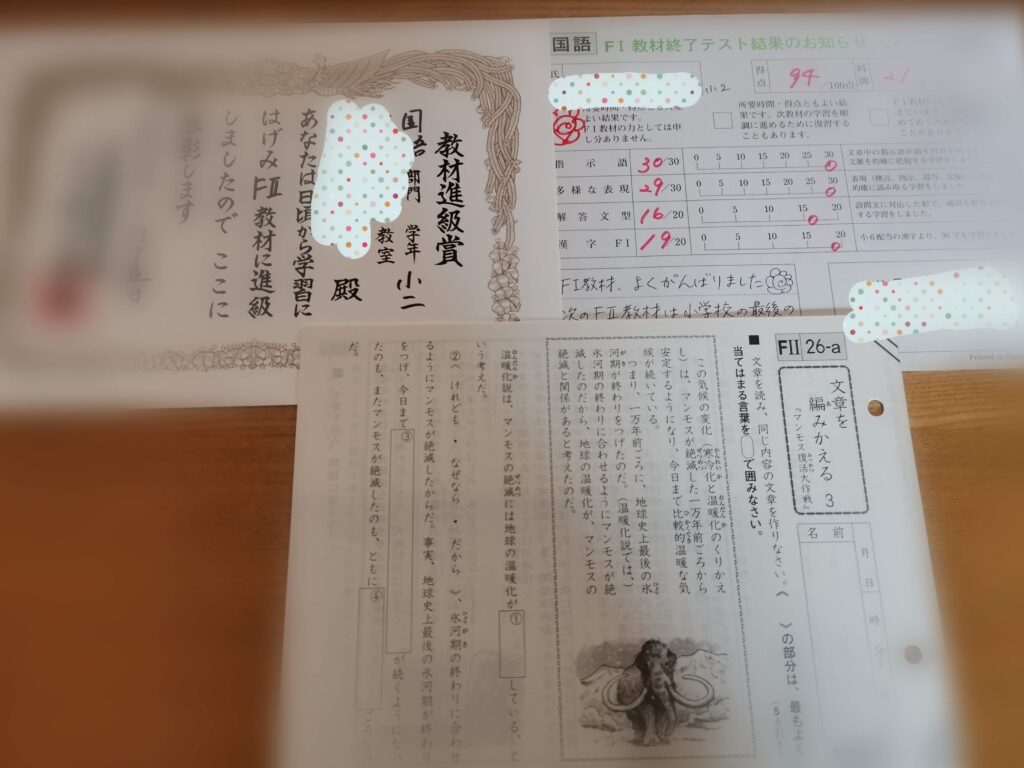 教材進級賞
国語 部門 学年 小二
教室
殿
あなたは日頃から学習に
はげみFⅡ教材に進級
しましたので ここに
表彰します
国語 FⅠ教材終了テスト結果のお知らせ
氏
小2
得点 94/100点 時間 21
よい結果です。
FⅠ教材の力としては申
し分ありません。
所要時間・得点ともよい結
果です。次教材の学習を順
調に進めるために復習する
こともあります。
指示語 30/30 0 5 10 15 20 25 30
多様な表現 29/30 0 5 10 15 20 25 30
解答文型 16/20 0 5 10 15 20
漢字FⅠ 19/20 0 5 10 15 20
小6配当の漢字より、90字を学習しました。
FⅠ教材、よくがんばりました
次のFⅡ教材は小学校の最後の
FⅡ 26-a
文章を
編みかえる 3
『マンモス復活大作戦』
名前
月 日 時 分
■ 文章を読み、同じ内容の文章を作りなさい。《 》の部分は、最もよく
当てはまる言葉を◯で囲みなさい。
この気候の変化(寒冷化と温暖化のくりかえ
し)は、マンモスが絶滅した一万年前ごろから
安定するようになり、今日まで比較的温暖な気
候が続いている。
つまり、一万年前ごろに、地球史上最後の氷
河期が終わりをつげたのだ。(温暖化説では、)
氷河期の終わりに合わせるようにマンモスが絶
滅したのだから、地球の温暖化が、マンモスの
絶滅と関係があると考えたのだ。
温暖化説は、マンモスの絶滅には地球の温暖化が ① している、と
いう考えだ。
②《 けれども ・ なぜなら ・ だから 》、氷河期の終わりに合わせ
るようにマンモスが絶滅したからだ。事実、地球史上最後の氷河期が終わり
をつげ、今日まで ③ が続くようにな
ったのも、またマンモスが絶滅したのも、ともに ④ ごろなの
だ。